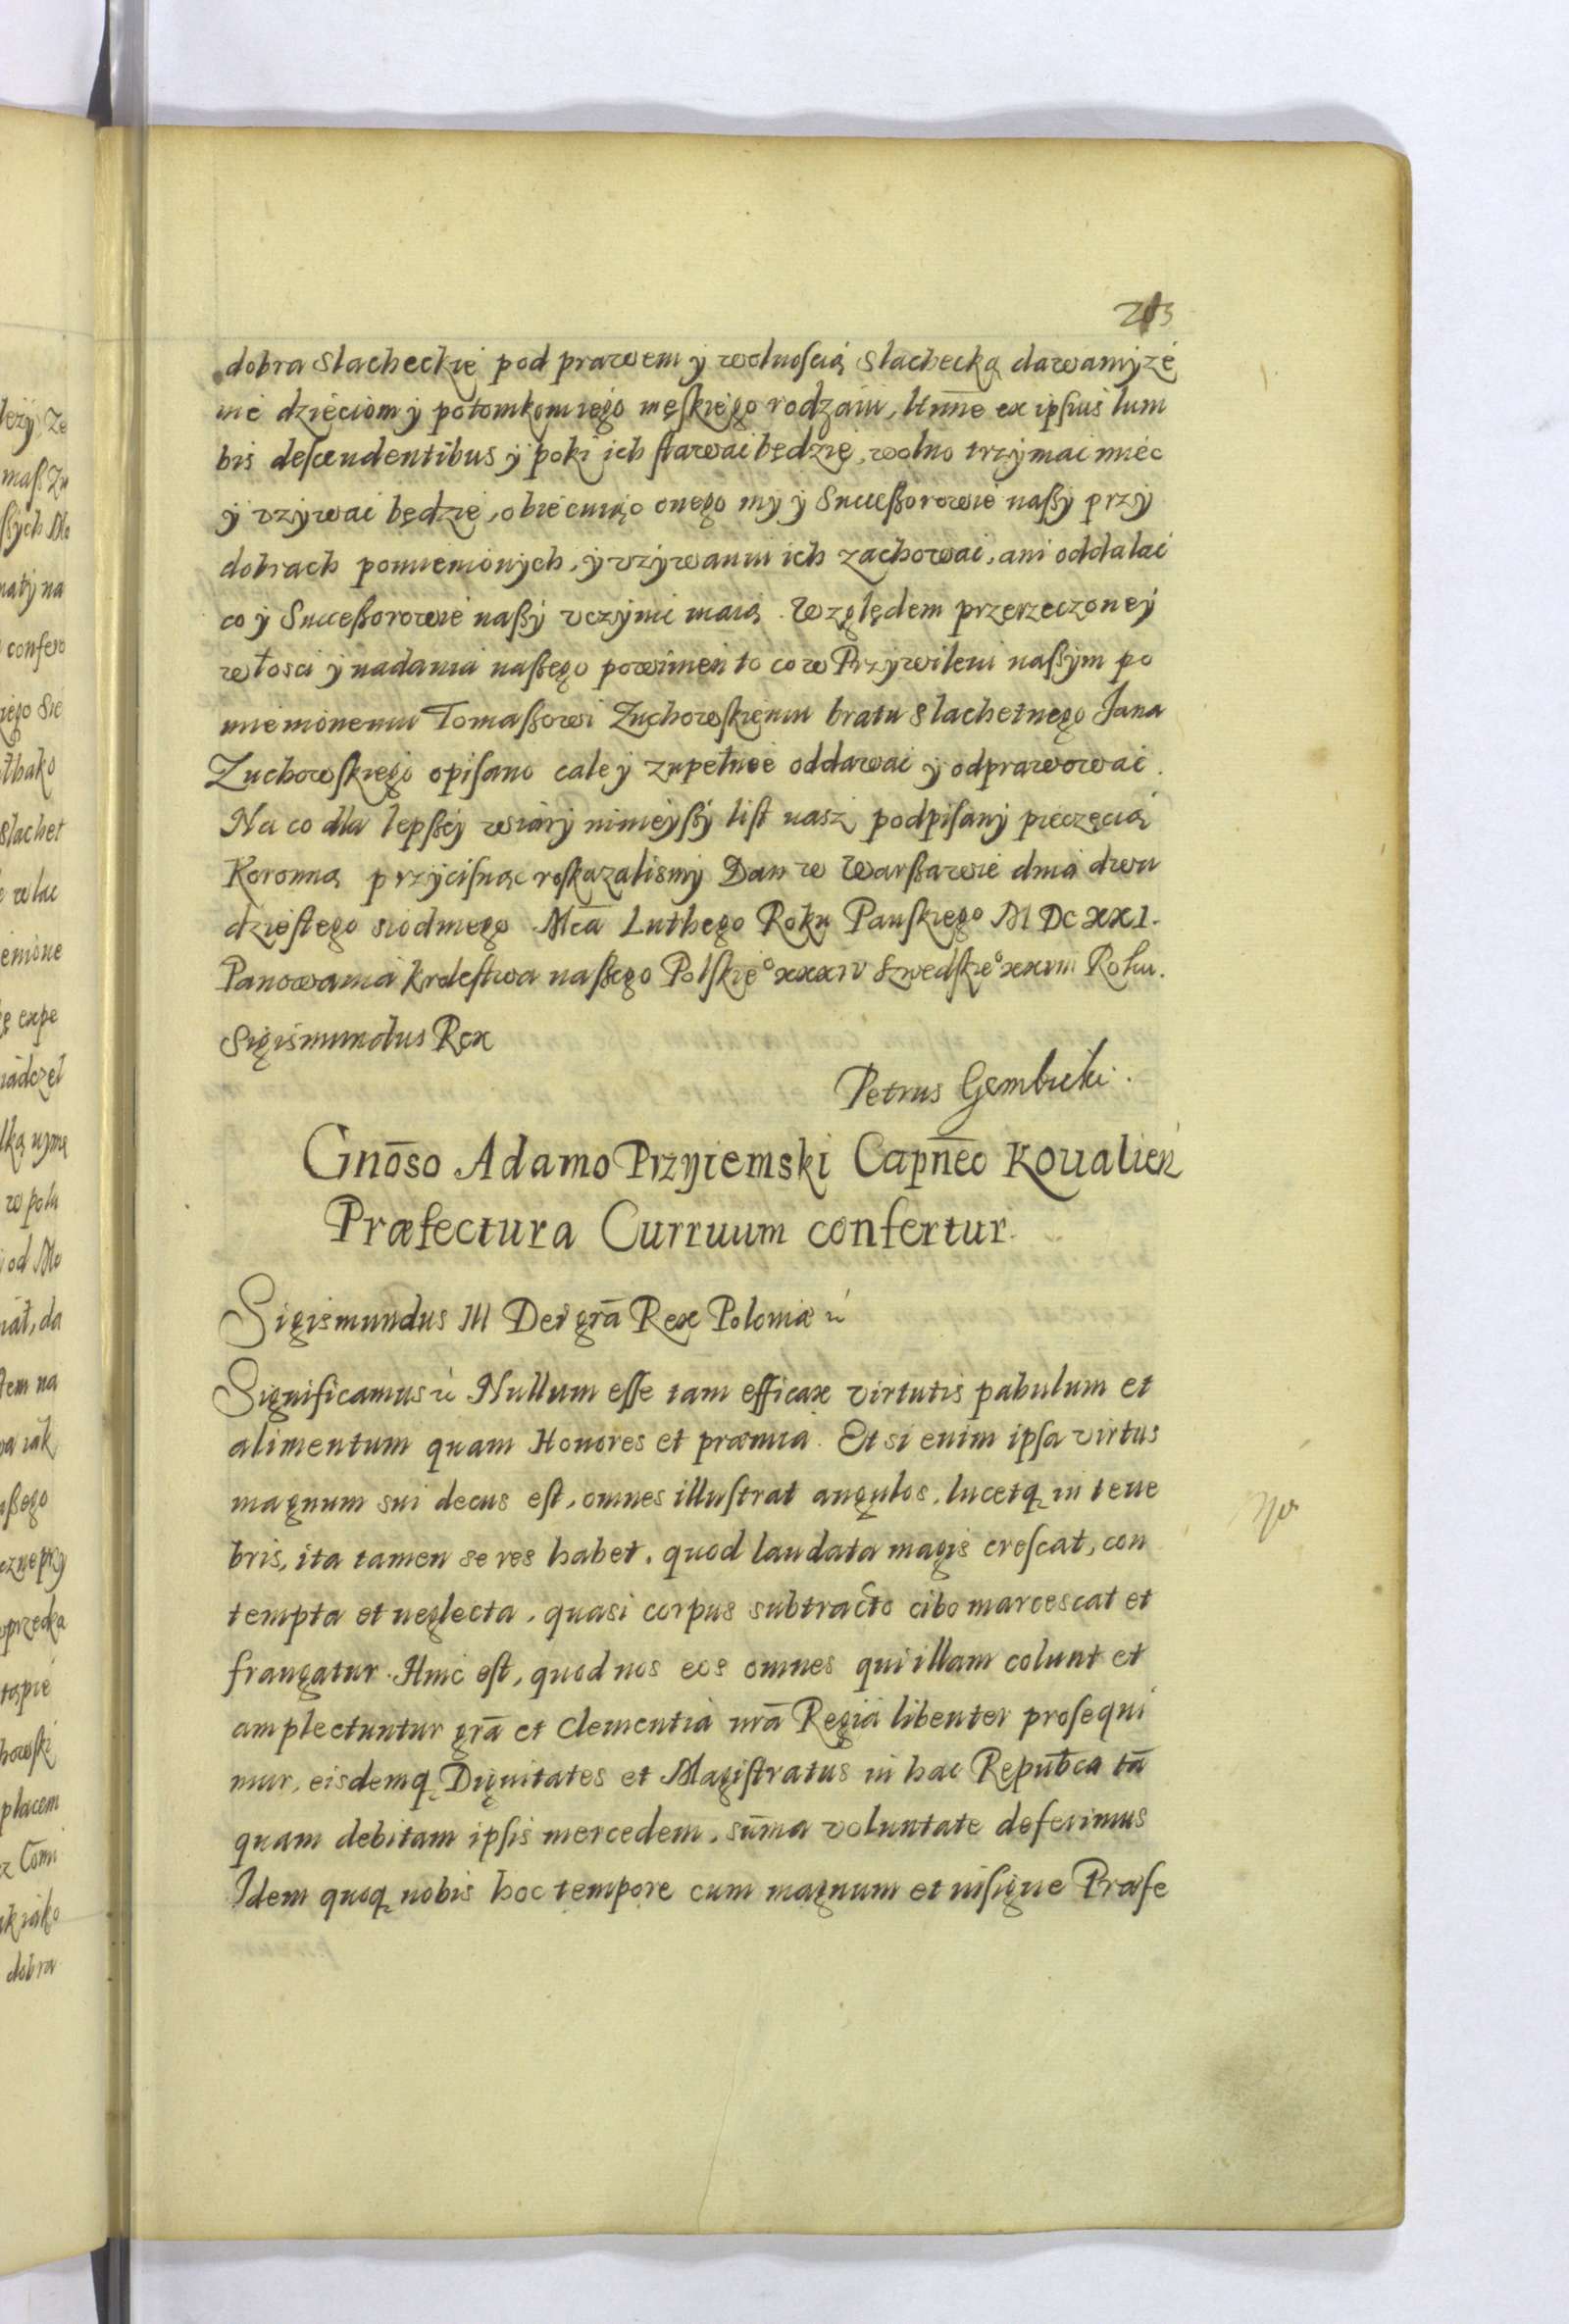 213
dobra slacheckie pod prawem ẏ wolnością slachecką dawamẏ ze
nie dziećiom ẏ potomkom iego męskiego rodzaiu, ex ipsius lum
bis descendentibus ẏ poki ich stawać będzie, wolno trzymać mieć
ẏ vżẏwać będzie, obiecuiąc onego mẏ ẏ Successorowie nassẏ przẏ
dobrach pomienionẏch, ẏ vżẏwaniu ich zachować, ani oddalać
co ẏ Successorowie nassẏ vczẏnić maią. Względem przerzeczoneẏ
włości ẏ nadania nassego powinien to co w Przẏwileiu nassẏm po
mienionemu Tomassowi Zuchowskiemu bratu slachetnego Jana
Zuchowskiego opisano całe ẏ zupełnie oddawać ẏ odprawować.
Na co dla lepsseẏ wiarẏ ninieẏssẏ list nasz podpisanẏ pieczęcią
Koronną przẏcisnąć roskazalismẏ Dan w Warssawie dnia dwu
dziestego siodmego Mcā Luthego Roku Panskiego M DC XXI.
Panowania Krolestwa nassego Polskie° XXXIV Szwedskie° XXVIII Roku.
Sigismundus Rex
Petrus Gembicki.
Gnōso Adamo Przyiemski Capnēo Koualien
Præfectura Curruum confertur.
Sigismundus III Dei grā Rex Poloniæ
Significamus Nullum esse tam efficax virtutis pabulum et
alimentum quam Honores et præmia. Et si enim ipsa virtus
magnum sui decus est, omnes illustrat angulos, lucetq in tene
bris, ita tamen se res habet, quod laudata magis crescat, con
tempta et neglecta, quasi corpus subtracto cibo marcescat et
frangatur. Hinc est, quod nos eos omnes qui illam colunt et
amplectuntur grā et clementia nrā Regia libenter prosequi
mur, eisdemq Dignitates et Magistratus in hac Republca tā
quam debitam ipsis mercedem, sūma voluntate deferimus
Idem quoq nobis hoc tempore cum magnum et insigne Præfe